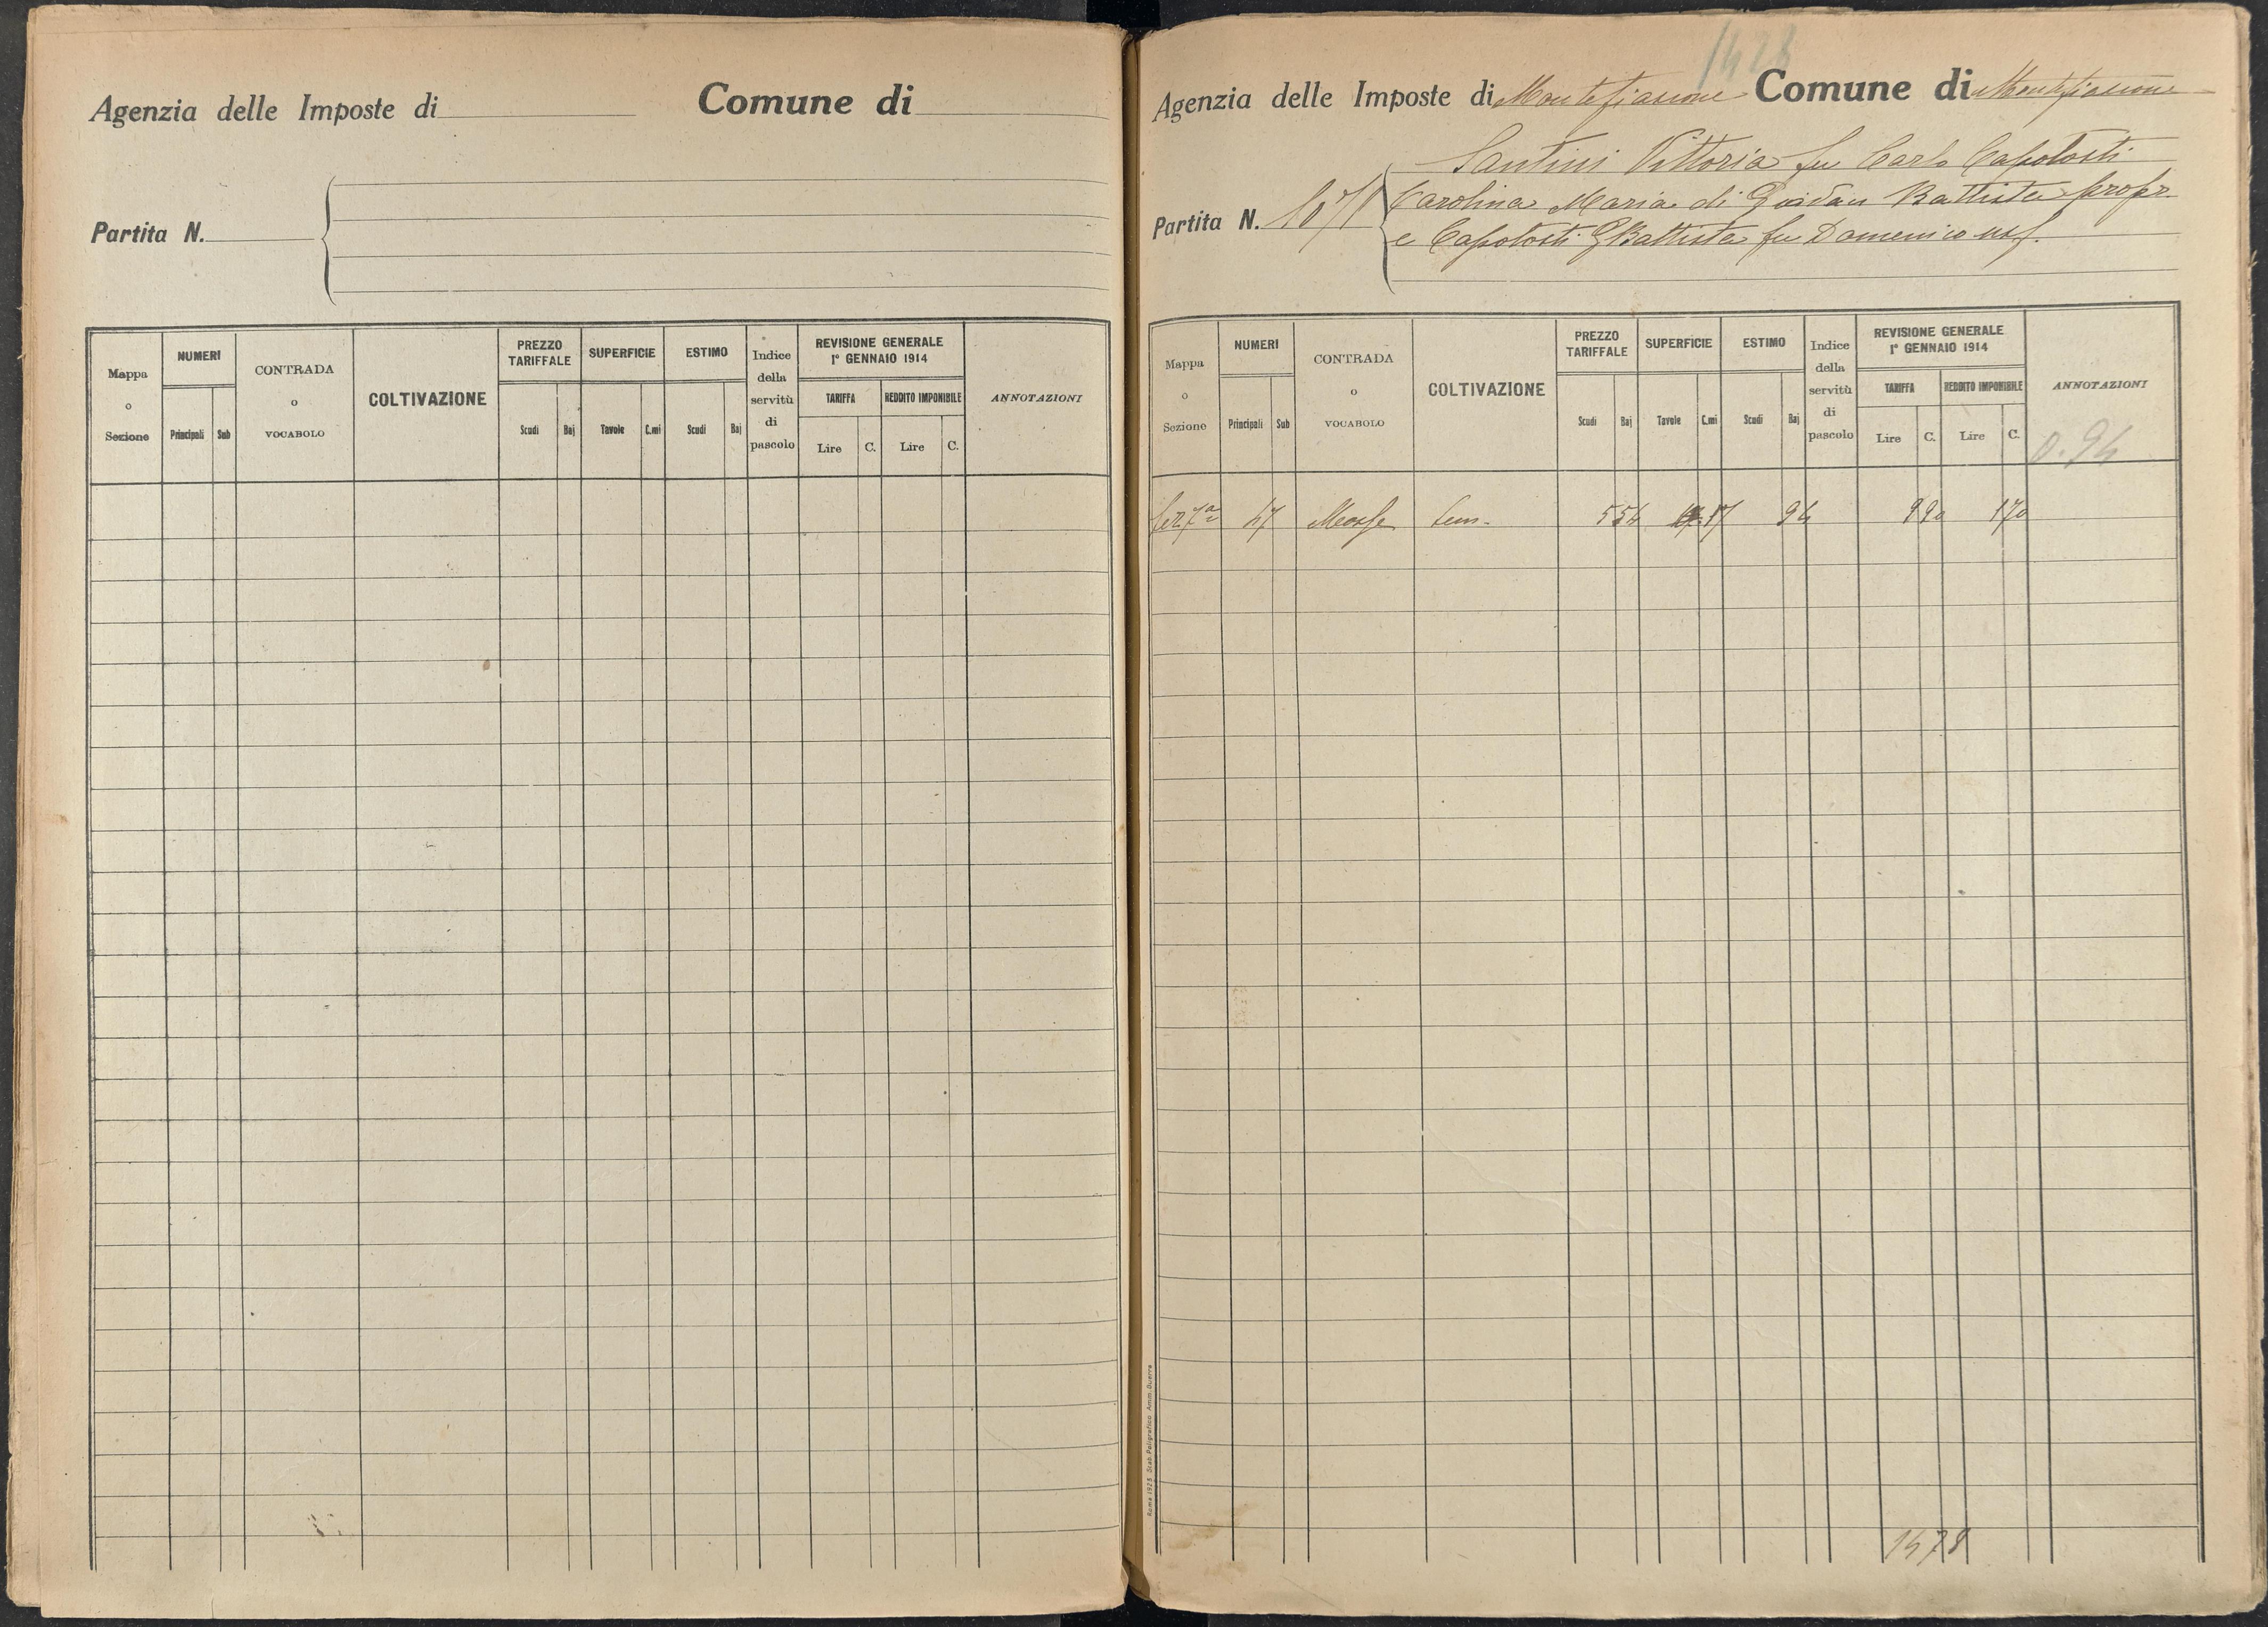 Agenzia delle Imposte di Comune di
Partita N.
Mappa o Sezione NUMERI Principali Sub CONTRADA o VOCABOLO COLTIVAZIONE PREZZO TARIFFALE Scudi Baj SUPERFICIE Tavole C.mi ESTIMO Scudi Baj Indice della servitù di pascolo REVISIONE GENERALE 1° GENNAIO 1914 TARIFFA Lire C. REDDITO IMPONIBILE Lire C. ANNOTAZIONI
1478
Agenzia delle Imposte di Montefiascone Comune di Montefiascone
Santini Vittoria fu Carlo Capotosti
Partita N. Carolina Maria di Giovan Battista propr.
e Capotosti GBattista fu Domenico usf.
Mappa o Sezione NUMERI Principali Sub CONTRADA o VOCABOLO COLTIVAZIONE PREZZO TARIFFALE Scudi Baj SUPERFICIE Tavole C.mi ESTIMO Scudi Baj Indice della servitù di pascolo REVISIONE GENERALE 1° GENNAIO 1914 TARIFFA Lire C. REDDITO IMPONIBILE Lire C. ANNOTAZIONI
0.94
Sez. 7ª 47 Mosse Sem. 554 17 94 990 170
Roma 1923 Stab. Poligrafico Amm. Guerra
1478